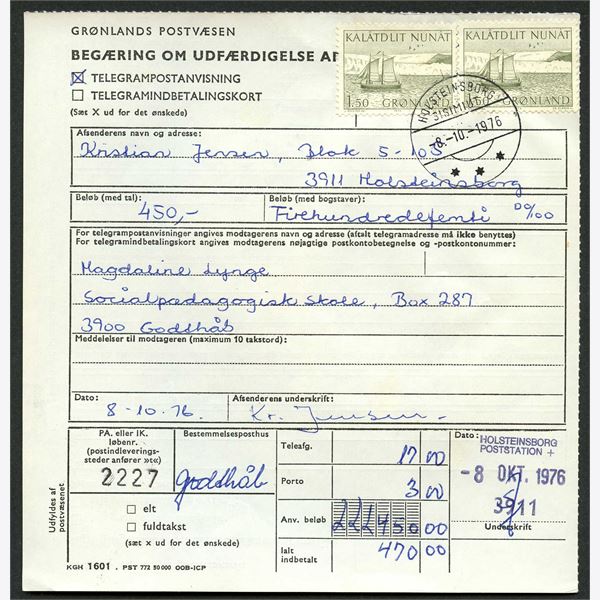 GRØNLANDS POSTVÆSEN
BEGÆRING OM UDFÆRDIGELSE AF
KALÂTDLIT NUNÂT
1.50 GRØNLAND
KALÂTDLIT NUNÂT
1.50 GRØNLAND
☒ TELEGRAMPOSTANVISNING
☐ TELEGRAMINDBETALINGSKORT
(Sæt X ud for det ønskede)
HOLSTEINSBORG
SISIMIUT
-8.-10.-1976
Afsenderens navn og adresse:
Kristian Jensen, Blok 5-105
3911 Holsteinsborg
Beløb (med tal):
Beløb (med bogstaver):
450,-
Firehundredefemti 00/100
For telegrampostanvisninger angives modtagerens navn og adresse (aftalt telegramadresse må ikke benyttes)
For telegramindbetalingskort angives modtagerens nøjagtige postkontobetegnelse og -postkontonummer:
Magdaline Lynge
Socialpædagogisk Skole, Box 287
3900 Godthåb
Meddelelser til modtageren (maximum 10 takstord):
Dato:
Afsenderens underskrift:
8-10.76.
Kr. Jensen.
PA. eller IK.
løbenr.
(postindleverings-
steder anfører »t«)
2227
Bestemmelsesposthus
Godthåb
☐ elt
☐ fuldtakst
(sæt × ud for det ønskede)
Udfyldes af
postvæsenet
Teleafg.
17 00
Porto
3 00
Anv. beløb
450 00
Ialt
indbetalt
470 00
Dato:
HOLSTEINSBORG
POSTSTATION +
-8 OKT. 1976
3911
Underskrift
KGH 1601 . PST 772 50 000 OOB-ICP